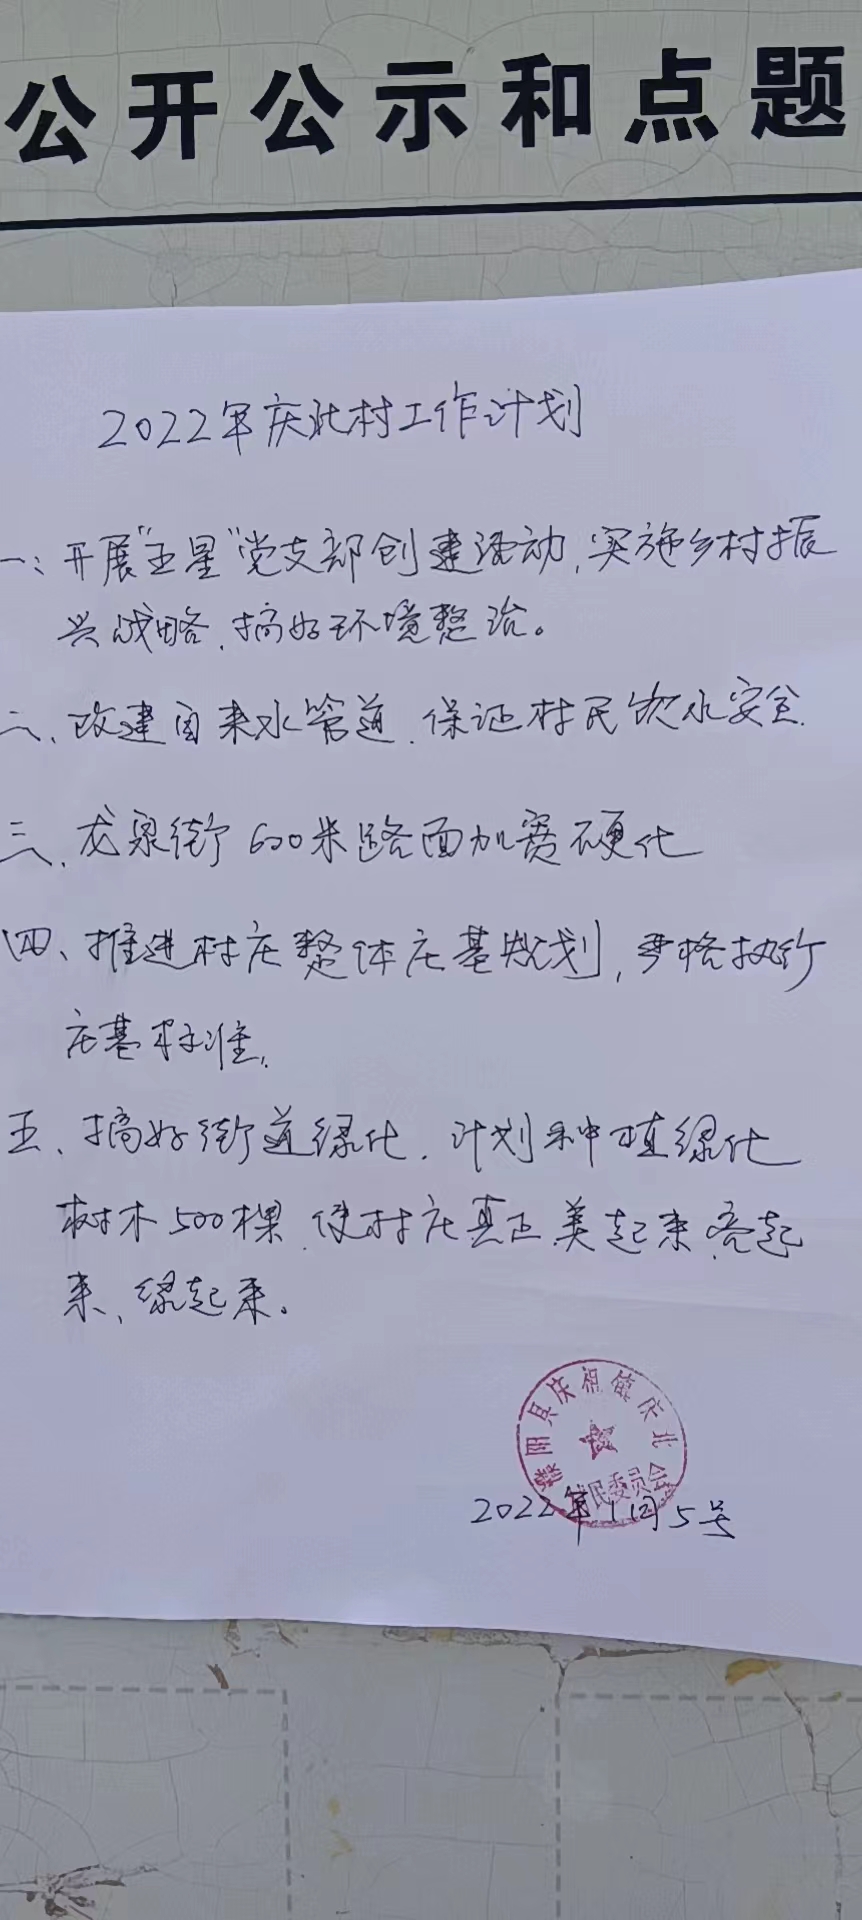 公开公示和点题
2022年庆北村工作计划
一、开展"五星"党支部创建活动,实施乡村振
兴战略,搞好环境整治。
二、改建自来水管道,保证村民饮水安全.
三、龙泉街600米路面加宽硬化
四、推进村庄整体庄基规划,严格执行
庄基标准.
五、搞好街道绿化,计划种植绿化
树木500棵,使村庄真正美起来、亮起
来、绿起来。
阴县庆祖镇庆北
村民委员会
2022年1月5号